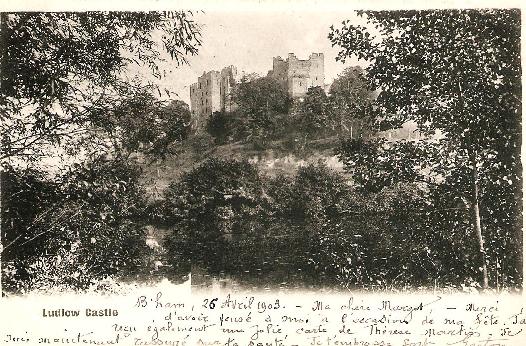 Ludlow Castle
B'ham, 26 Avril 1903. - Ma chère Margot, - Merci
d'avoir pensé à moi à l'occasion de ma fête. J'ai
reçu également une jolie carte de Thérèse
maintenant ta santé - Je t'embrasse